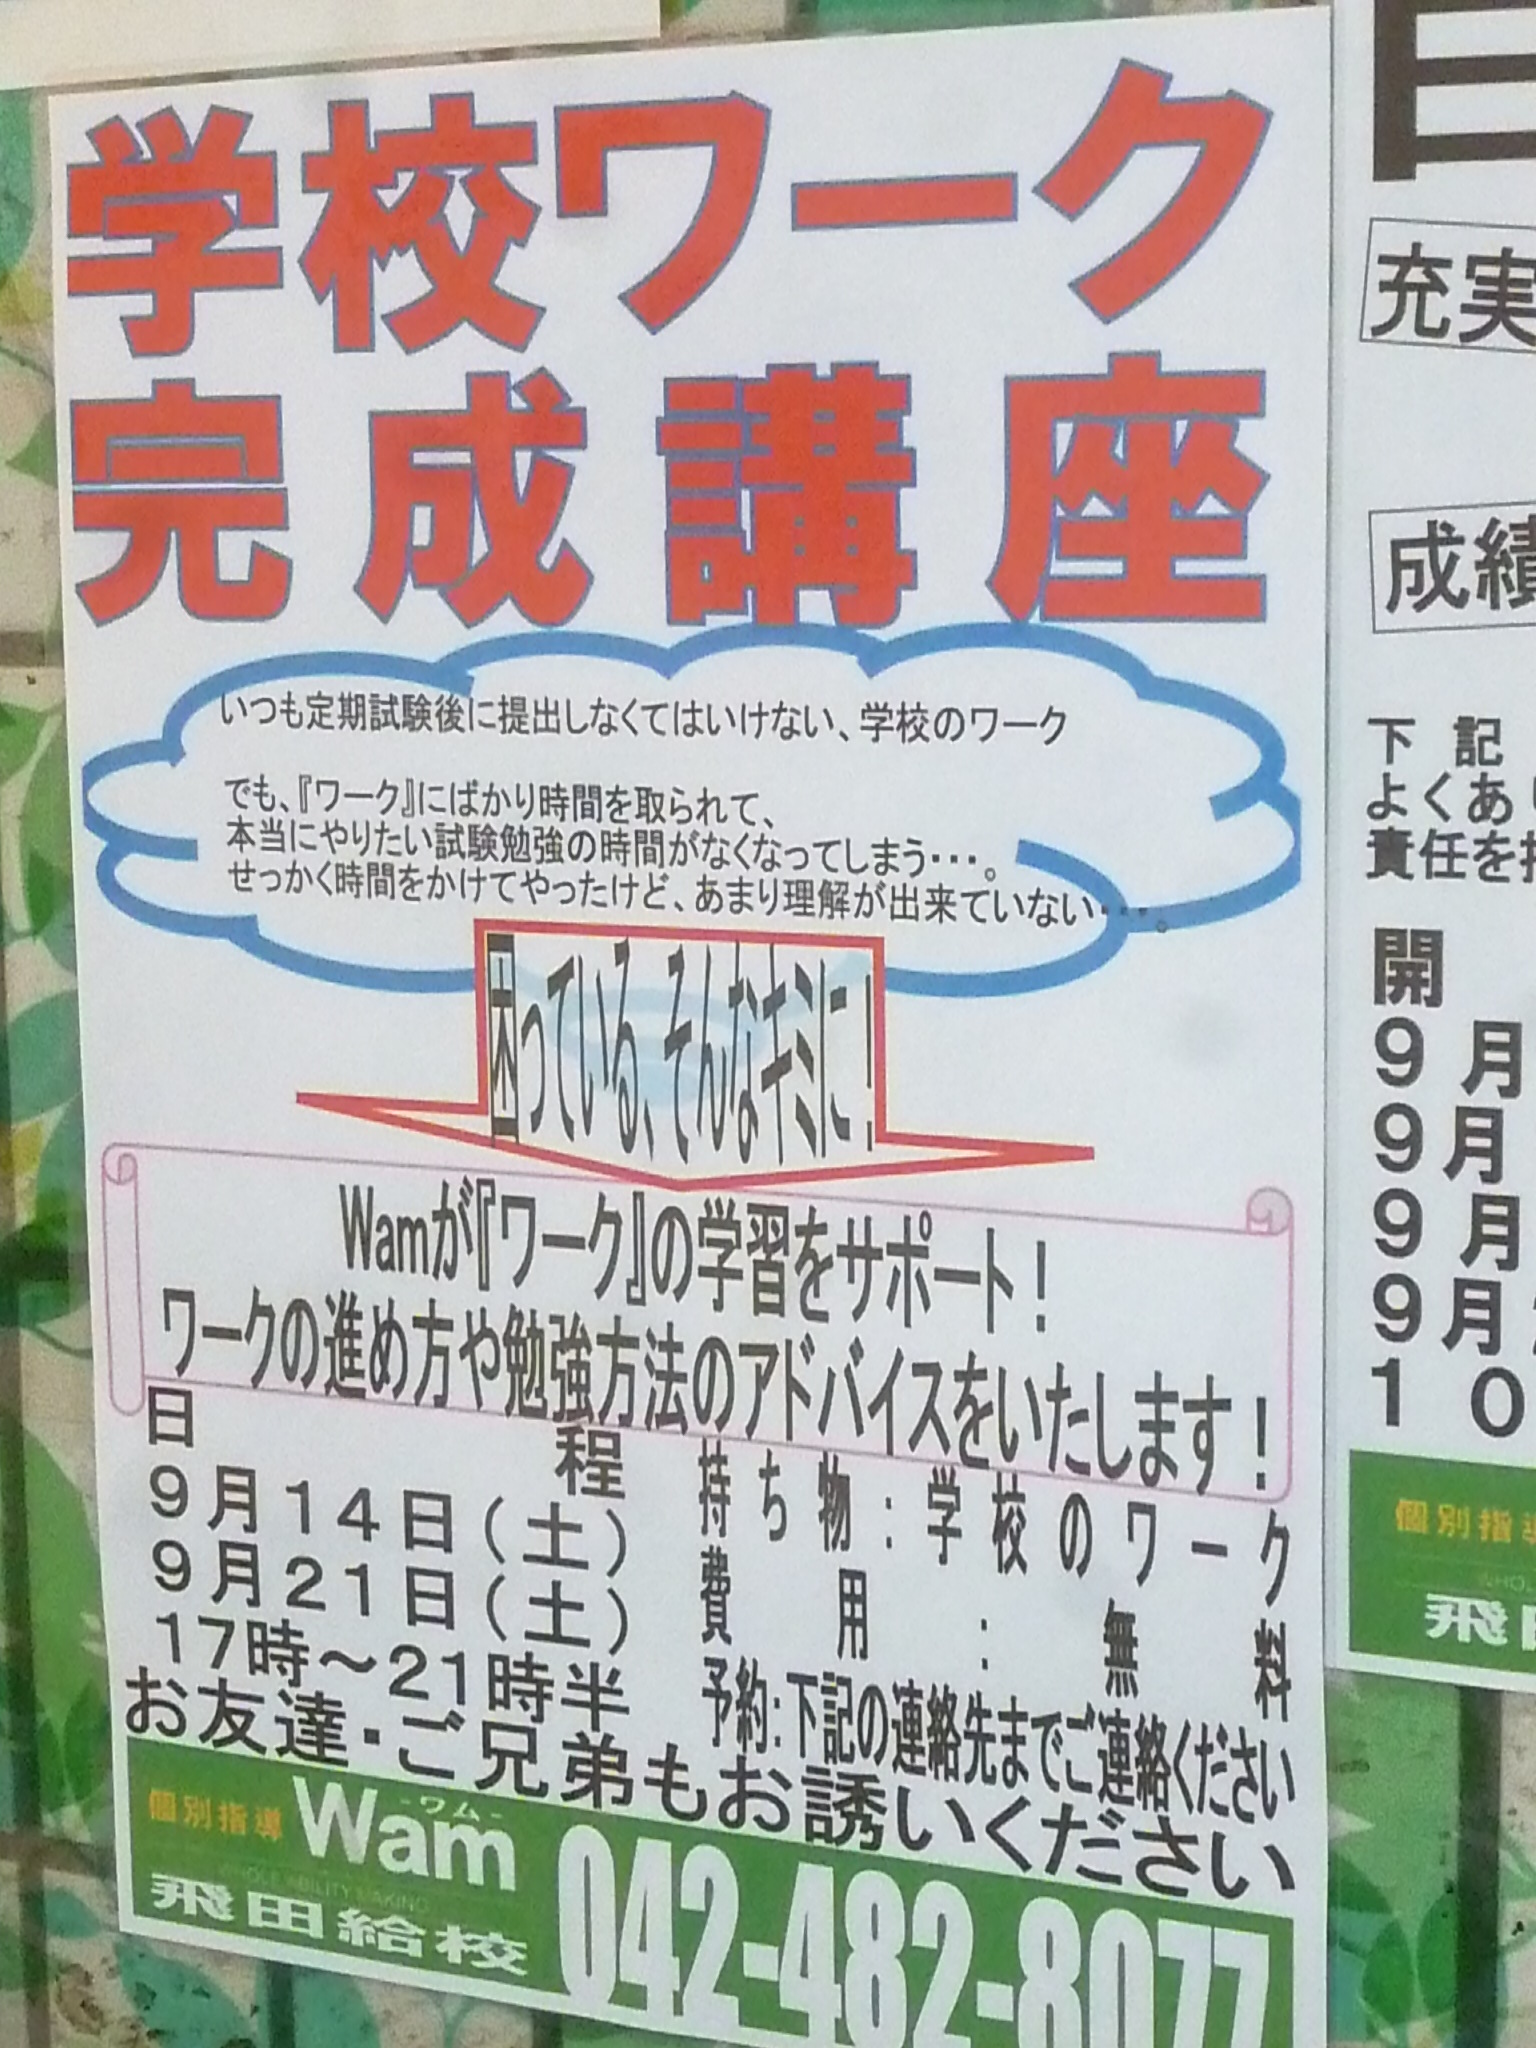 学校ワーク
完成講座
いつも定期試験後に提出しなくてはいけない、学校のワーク
でも、『ワーク』にばかり時間を取られて、
本当にやりたい試験勉強の時間がなくなってしまう・・・。
せっかく時間をかけてやったけど、あまり理解が出来ていない・・・。
困っている、そんなキミに！
Wamが『ワーク』の学習をサポート！
ワークの進め方や勉強方法のアドバイスをいたします！
日程
9月14日(土)
9月21日(土)
17時～21時半
持ち物：学校のワーク
費用：無料
予約：下記の連絡先までご連絡ください
お友達・ご兄弟もお誘いください
個別指導 Wam
-ワム-
飛田給校
042-482-8077
充実
成績
下記
よくあ
責任を
開
9月
9月
9月
9月
10
個別指導
飛田